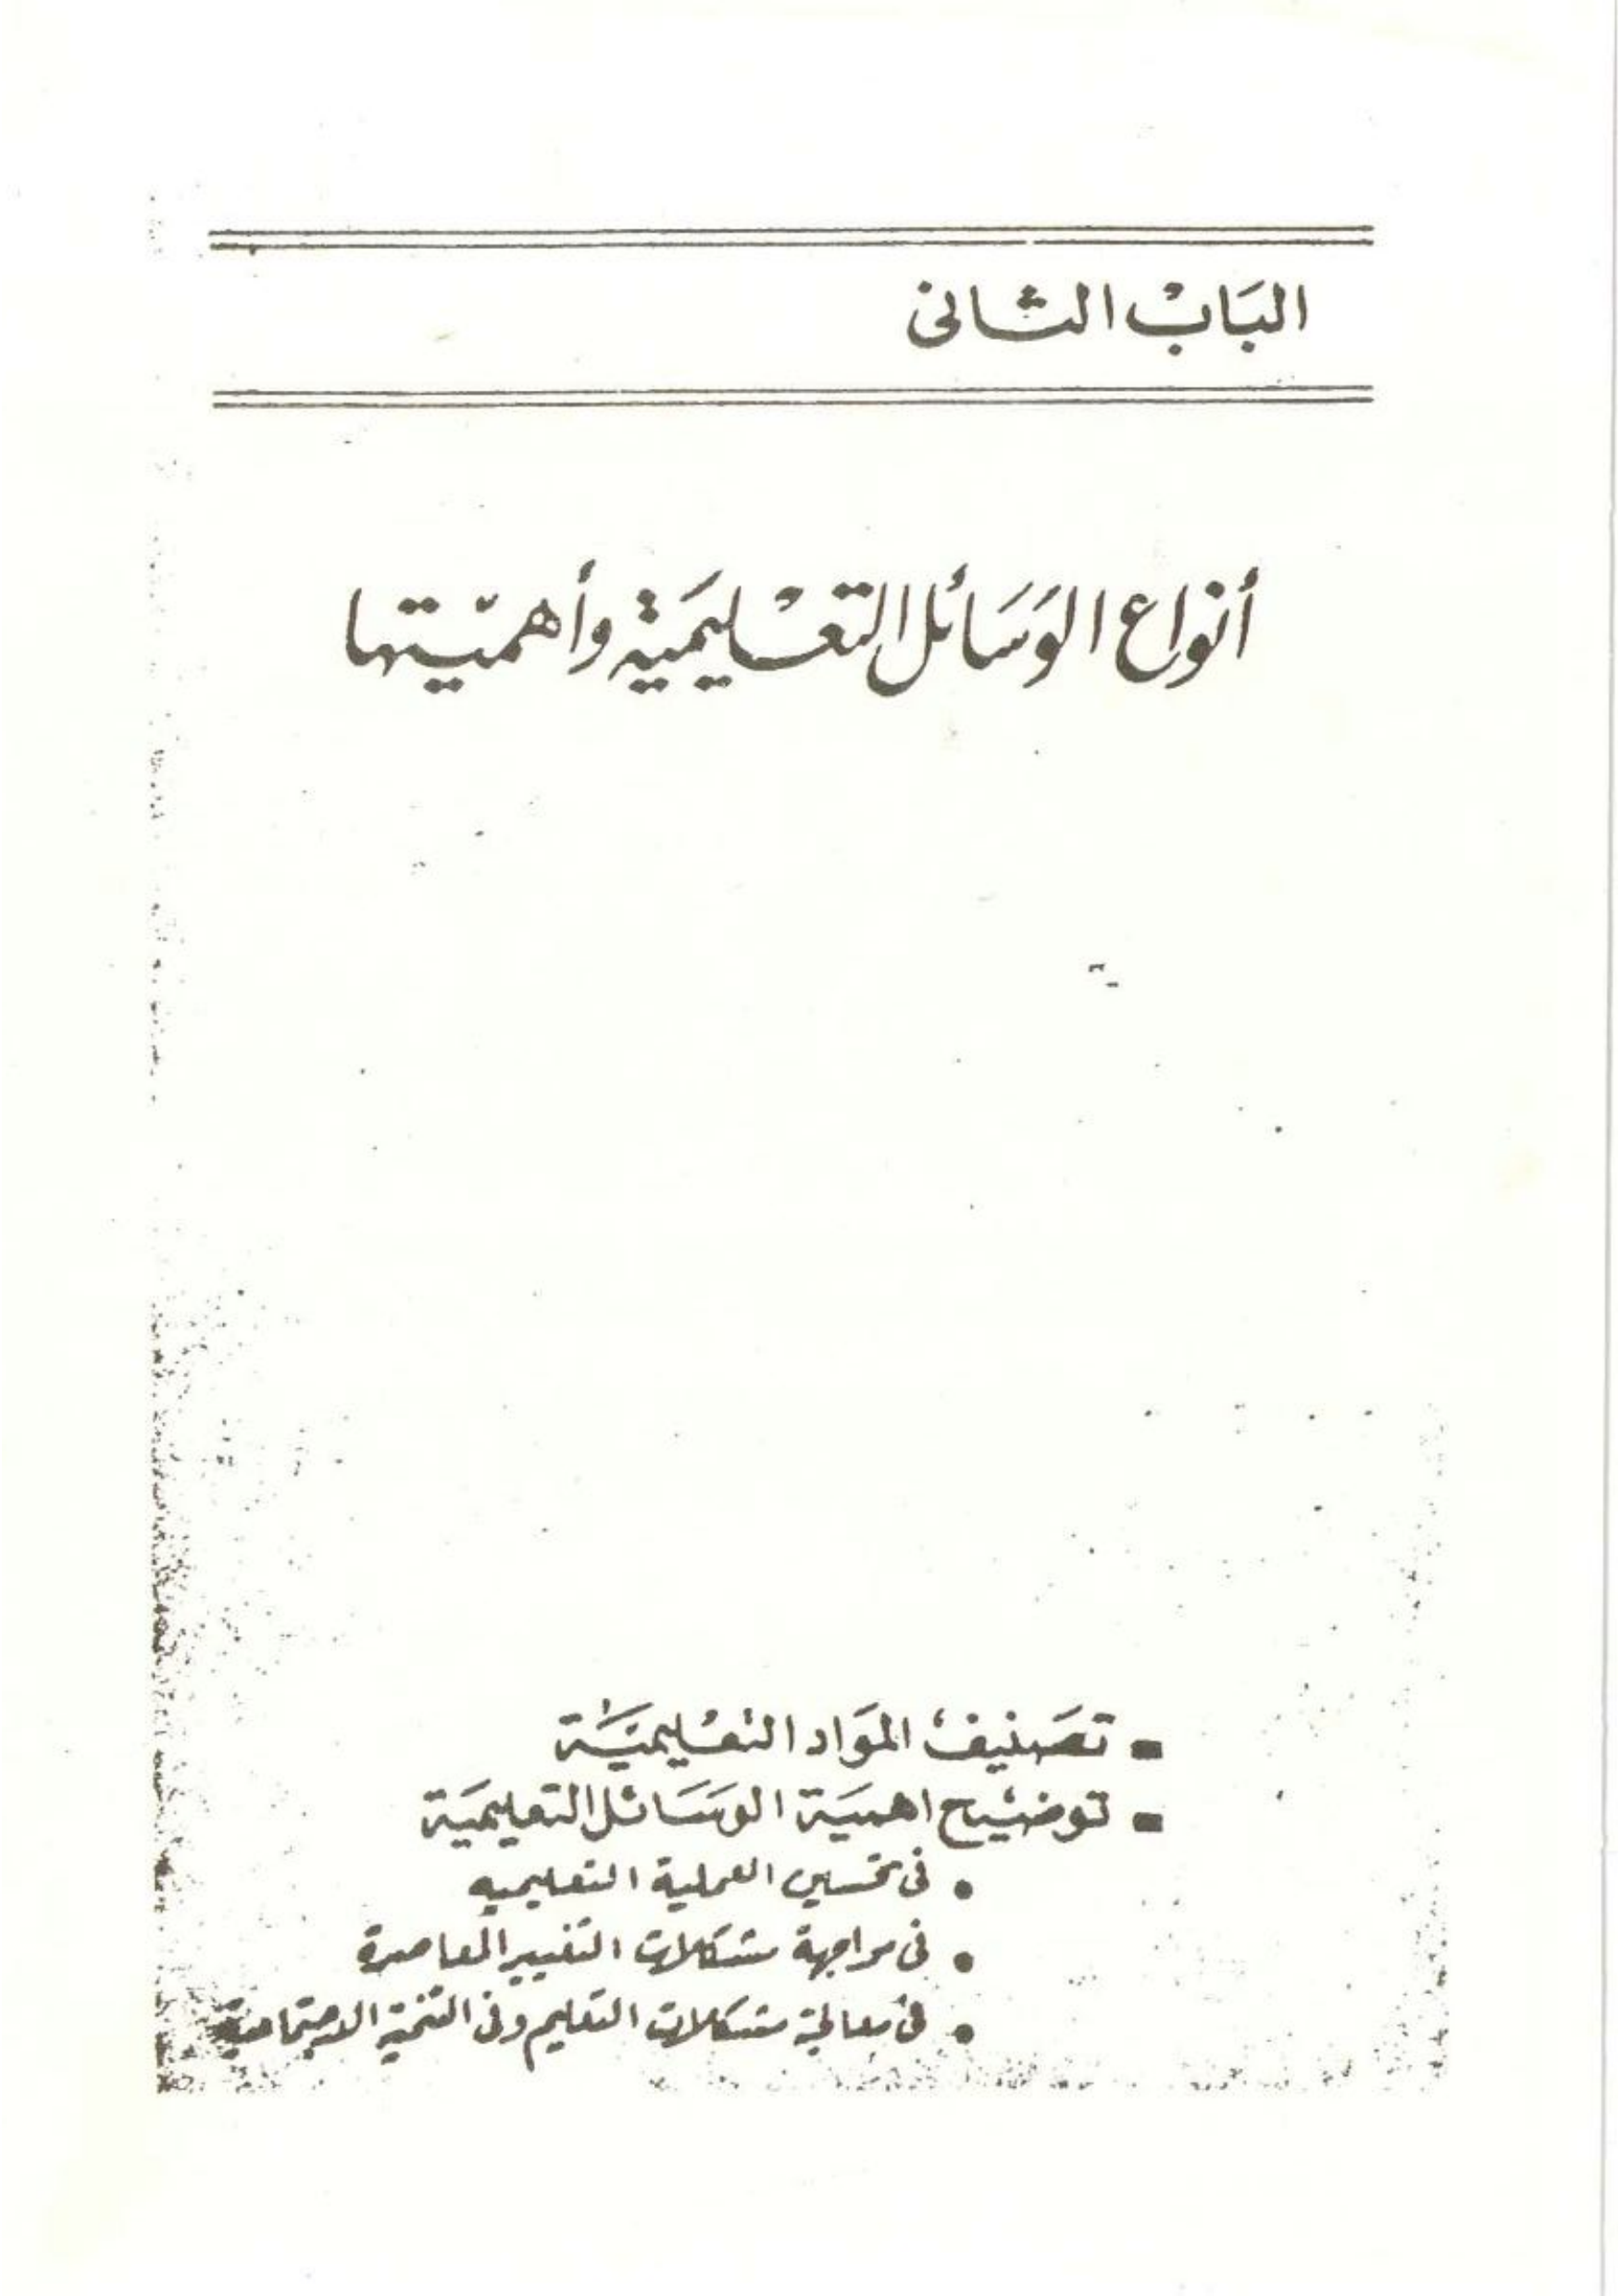 البَابْ الثانى
أنواع الوَسَائل التعْليمَية وأهميّتها
تصَنيف المَواد التعْليميَّة
توضيح اهميَة الوسَائل التعليميَة
فى تحسين العملية التعليميه
فى مواجهة مشكلات التغيير المعاصرة
فى معالجة مشكلات التعليم وفى التنمية الاجتماعية